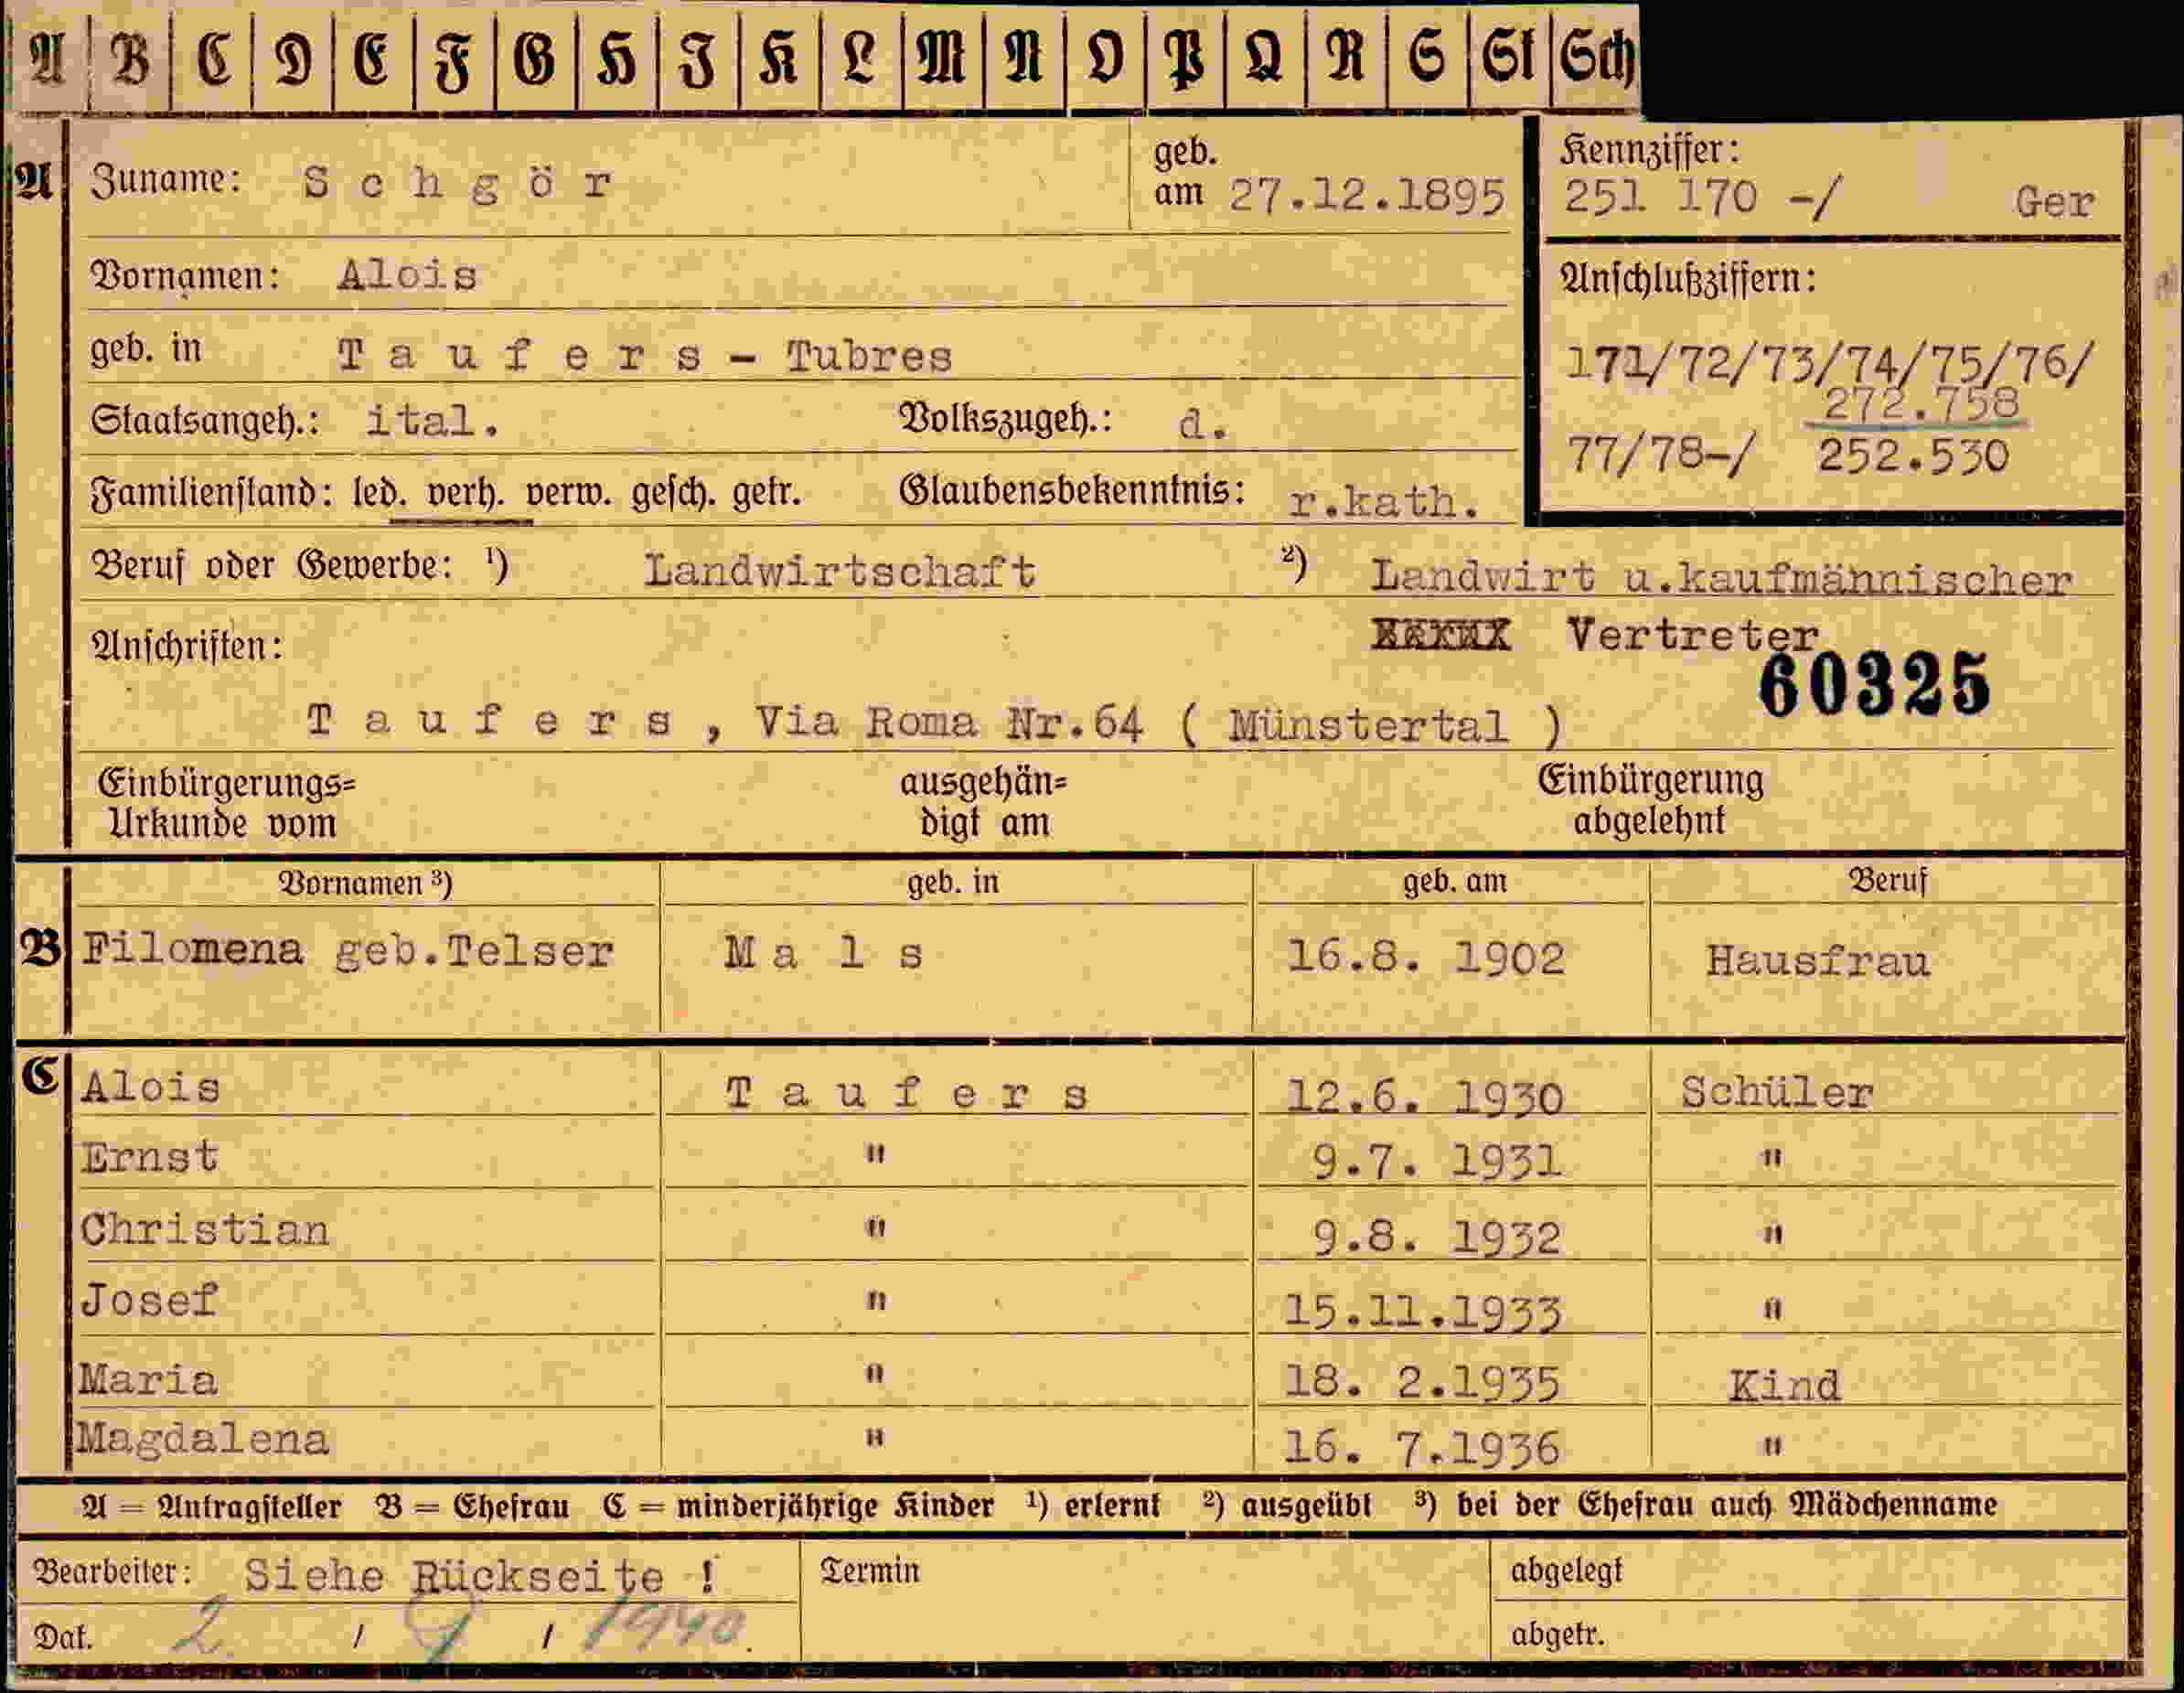 A B C D E F G H I K L M N O P Q R S St Sch
A Zuname: Schgör geb. am 27.12.1895
Kennziffer:
251 170 -/ Ger
Vornamen: Alois
Anschlußziffern:
geb. in Taufers - Tubres
171/72/73/74/75/76/
272.758
Staatsangeh.: ital. Volkszugeh.: d.
77/78-/ 252.530
Familienstand: led. verh. verw. gesch. getr. Glaubensbekenntnis: r.kath.
Beruf oder Gewerbe: ¹) Landwirtschaft ²) Landwirt u.kaufmännischer
Anschriften: Vertreter
60325
Taufers, Via Roma Nr.64 ( Münstertal )
Einbürgerungs= ausgehän= Einbürgerung
Urkunde vom digt am abgelehnt
Vornamen ³) geb. in geb. am Beruf
B Filomena geb.Telser Mals 16.8. 1902 Hausfrau
C Alois Taufers 12.6. 1930 Schüler
Ernst " 9.7. 1931 "
Christian " 9.8. 1932 "
Josef " 15.11.1933 "
Maria " 18. 2.1935 Kind
Magdalena " 16. 7.1936 "
A = Antragsteller B = Ehefrau C = minderjährige Kinder ¹) erlernt ²) ausgeübt ³) bei der Ehefrau auch Mädchenname
Bearbeiter: Siehe Rückseite ! Termin abgelegt
Dat. 2 / / 1940. abgetr.